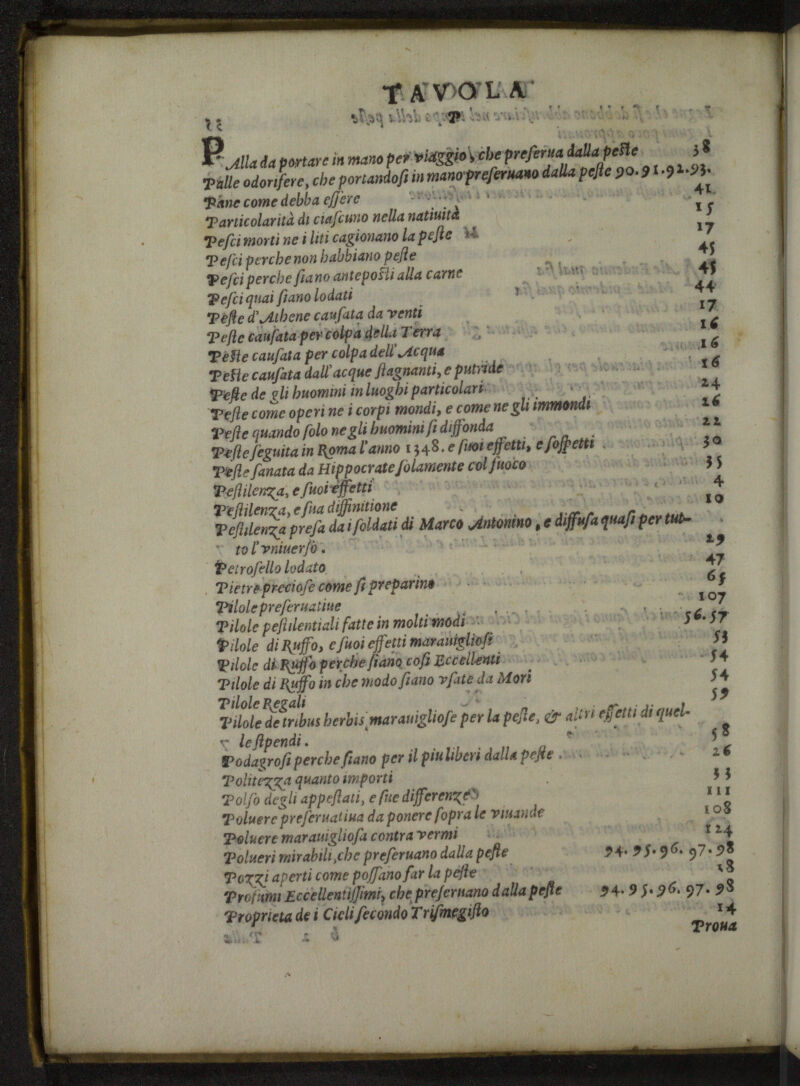 TAVOLA
P
PAlla da portare in mano per viaggio, che preserua dalla peste 38
Palle odorifere, che portandosi in mano preseruano dalla peste 90.91.92.93.
Pane come debba essere 41
Particolarità di ciascuno nella natiuità 15
Pesci morti ne i liti cagionano la peste 17
Pesci perche non habbiano peste 45
Pesci perche siano anteposti alla carne 45
Pesci quai siano lodati 44
Peste d'Athene causata da venti 17
Peste causata per colpa della Terra 16
Peste causata per colpa dell'Acqua 16
Peste causata dall'acque stagnanti, e putride 16
Peste de gli huomini in luoghi particolari 24
Peste come operi ne i corpi mondi, e come ne gli immondi 26
Peste quando solo ne gli huomini si diffonda 22
Peste seguita in Roma l'anno 1348. e suoi effetti, e sospetti 30
Peste sanata da Hippocrate solamente col fuoco 35
Pestilenza, e suoi effetti 4
Pestilenza, e sua diffinitione 10
Pestilenza presa da i soldati di Marco Antonino, e diffusa quasi per tut-
to l'vniuerso. 29
Petrosello lodato 47
Pietre preciose come si preparino 65
Pilole preseruatiue 107
Pilole pestilentiali fatte in molti modi 56.57
Pilole di Ruffo, e suoi effetti marauigliosi 53
Pilole di Ruffo perche siano cosi Eccellenti 54
Pilole di Ruffo in che modo siano vsate da Mori 54
Pilole Regali 59
Pilole de tribus herbis marauigliose per la peste, & altri effetti di quel-
le stipendi. 58
Podagrosi perche siano per il piu liberi dalla peste. 26
Politezza quanto importi 33
Polso degli appestati, e sue differenze 111
Poluere preseruatiua da ponere sopra le viuande 108
Poluere marauigliosa contra vermi 124
Polueri mirabili, che preseruano dalla peste 94.95.96.97.98
Pozzi aperti come possano far la peste 18
Profumi Eccellentissimi, che preseruano dalla peste 94.95.96.97.98
Proprieta de i Cieli secondo Trismegisto 14
Proua